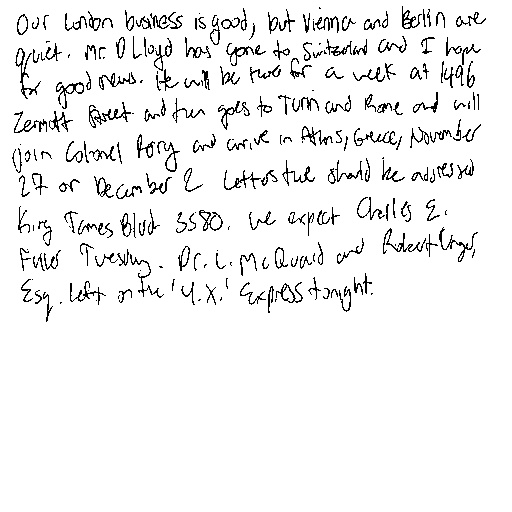 Our London business is good, but Vienna and Berlin are
quiet. Mr. D Lloyd has gone to Switzerland and I hope
for good news. He will be there for a week at 1496
Zermott Street and then goes to Turin and Rome and will
join Colonel Parry and arrive in Athens, Greece, November
27 or December 2. Letters there should be addressed
King James Blvd 3580. We expect Charles E.
Fuller Tuesday. Dr. L. McQuaid and Robert Unger,
Esq. left on the 'Y.X.' Express tonight.